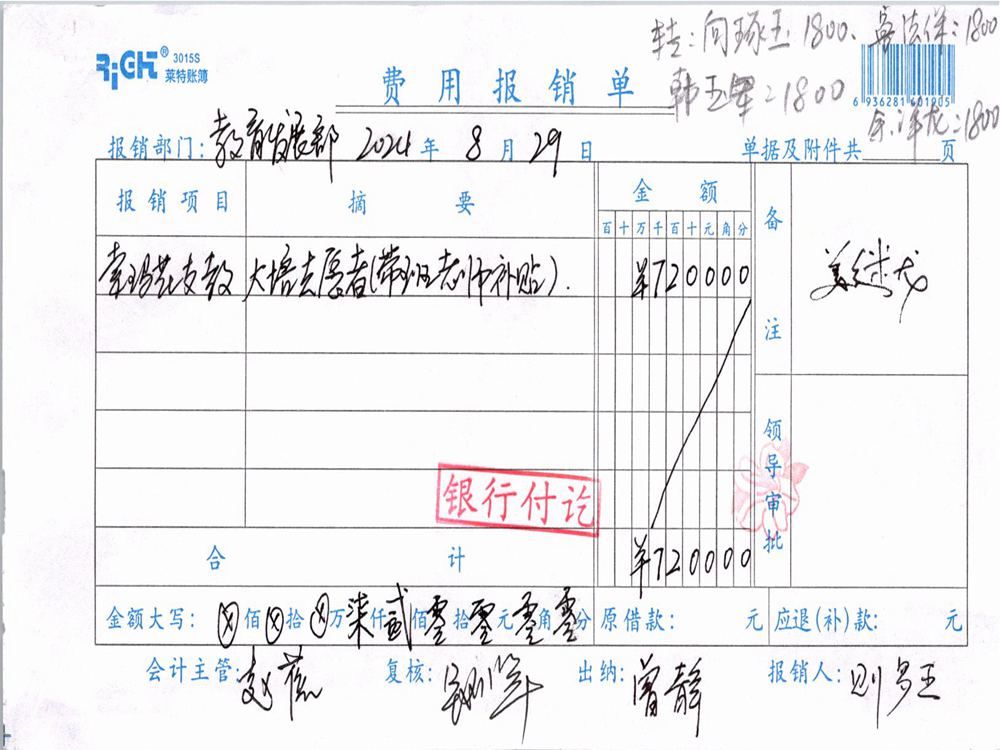 转:向琢玉1800、
韩玉军:1800
余泽龙:1800
RiGHT® 3015S
莱特账簿
费用报销单
6 936281 401905
报销部门:教育发展部 2024年 8月 29日 单据及附件共 页
报销项目 摘要 金额 备注
百十万千百十元角分
索玛花支教 大培志愿者(带班老师补贴). ¥720000
领导审批
银行付讫
合计 ¥720000
金额大写:ⓧ佰ⓧ拾ⓧ万柒仟贰佰零拾零元零角零分 原借款: 元 应退(补)款: 元
会计主管: 复核: 出纳:曾静 报销人: